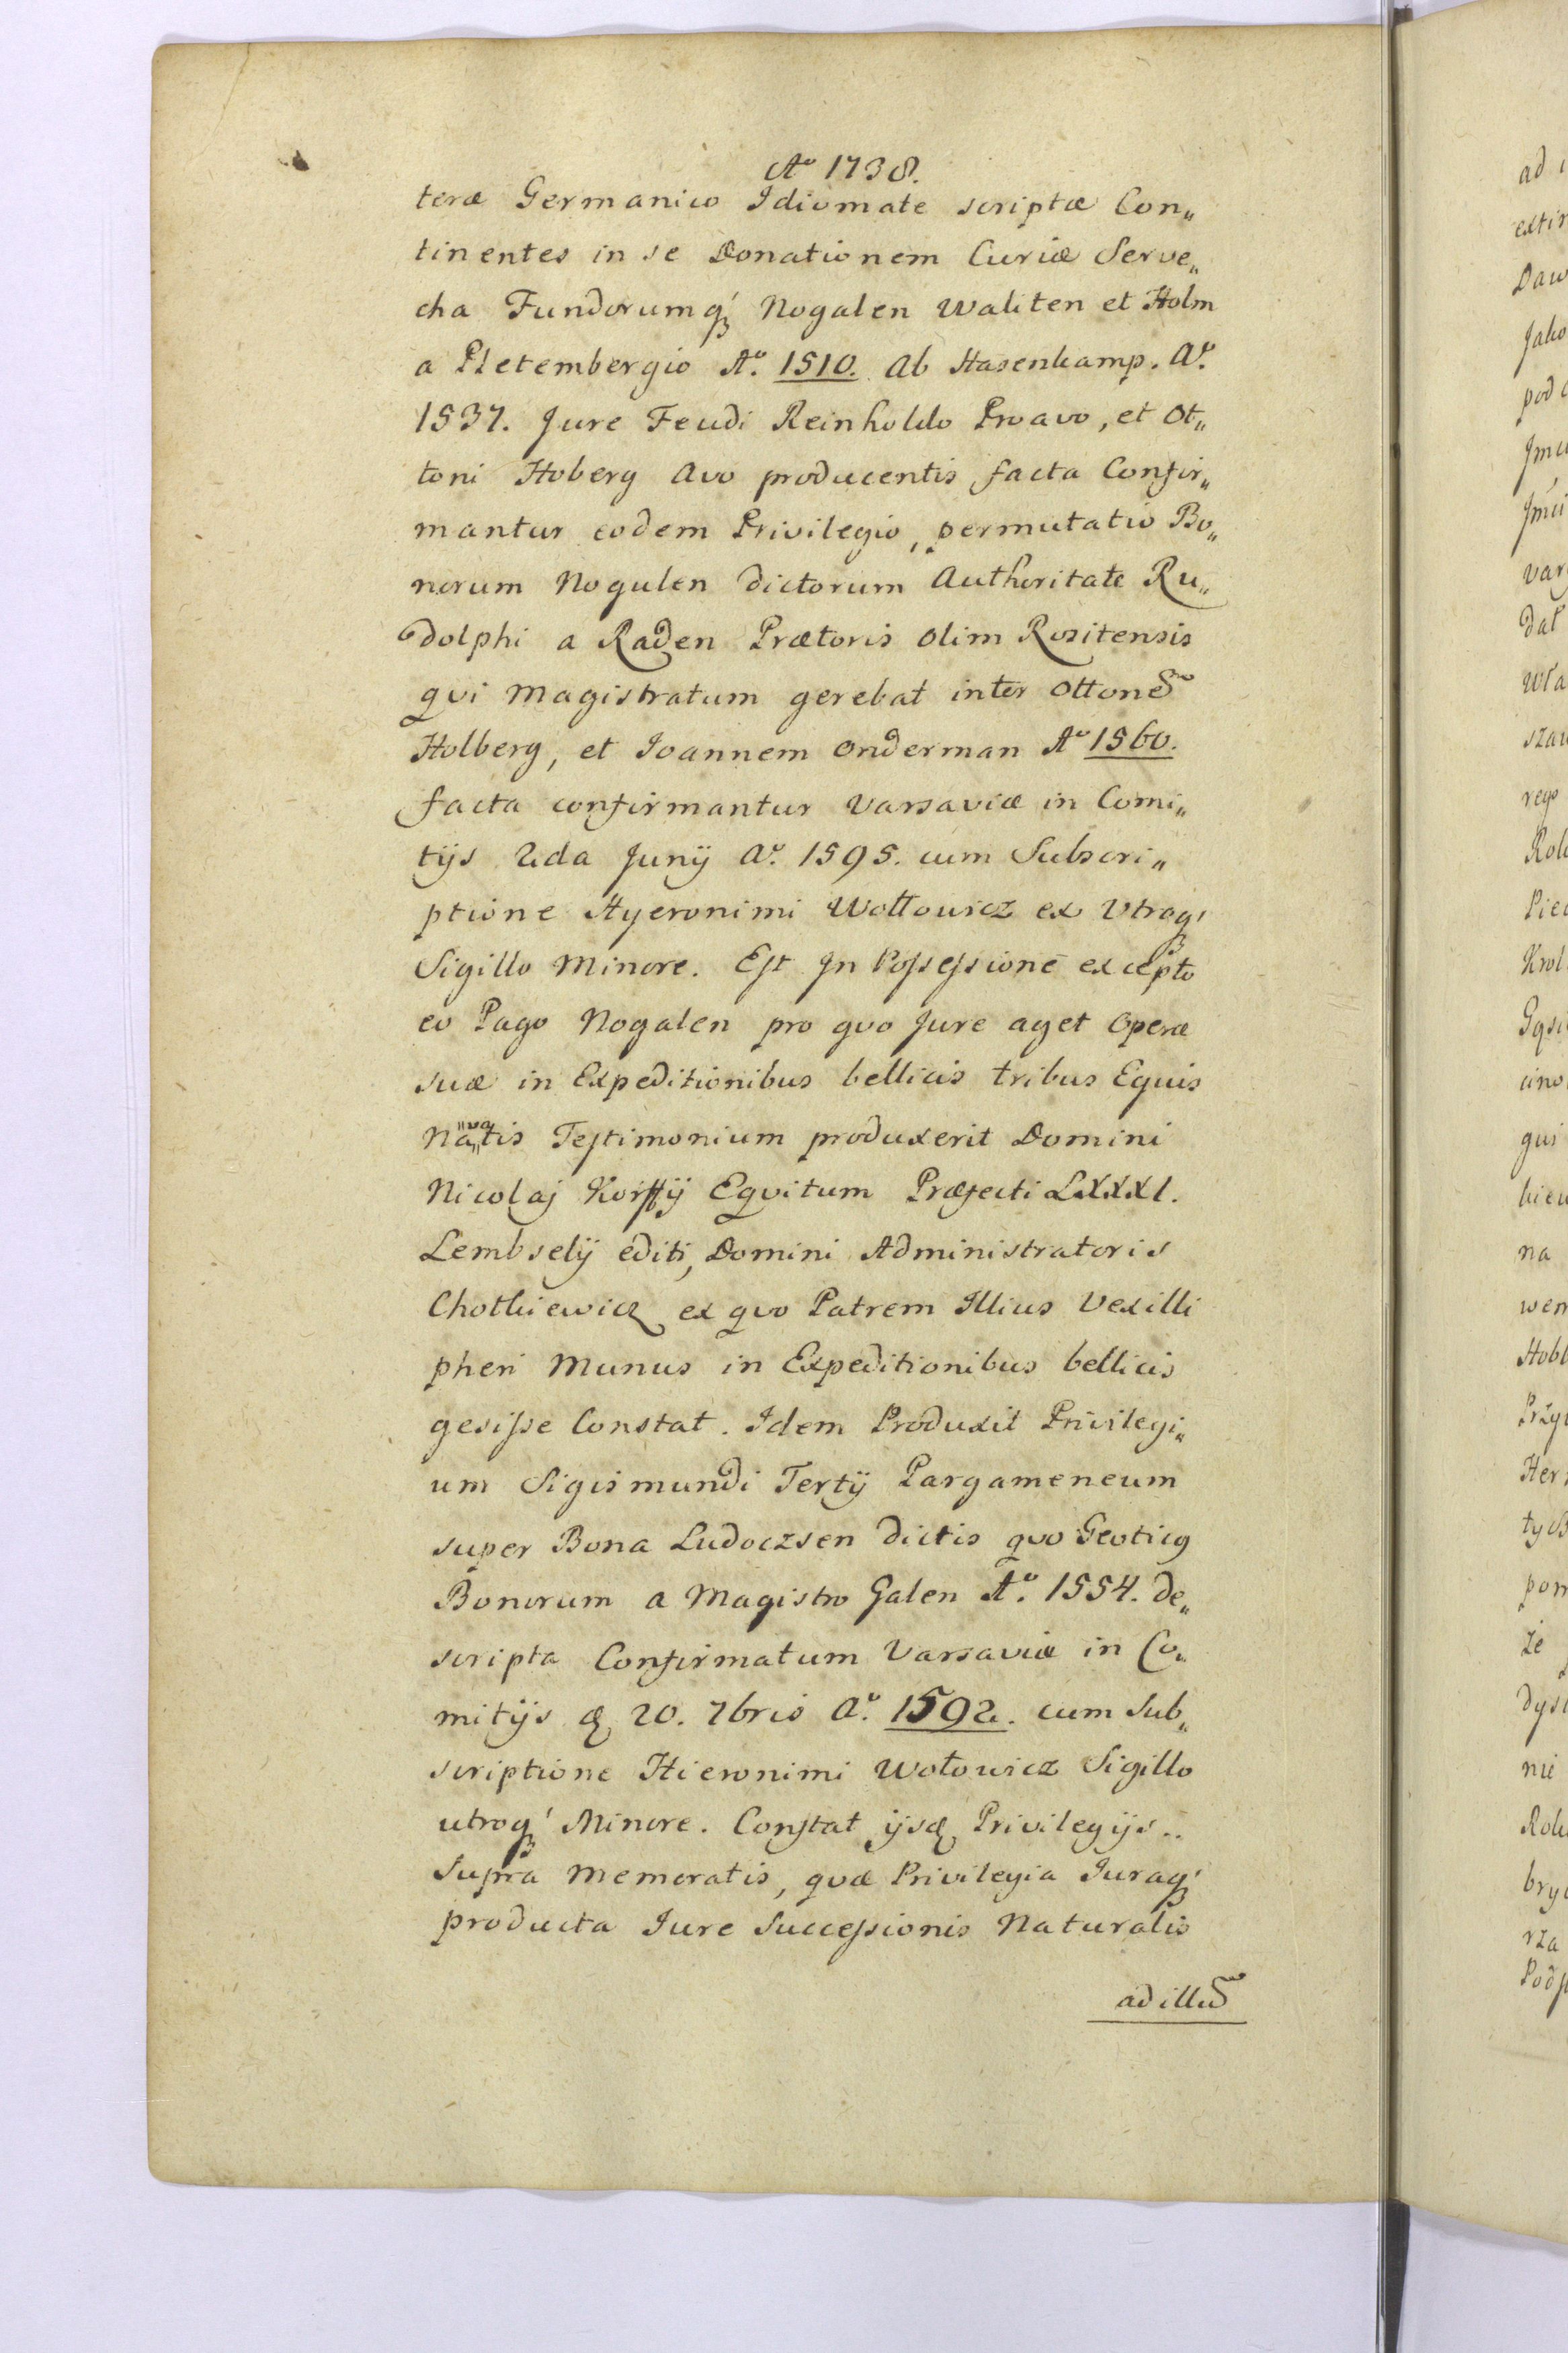 Aº 1738.
teræ Germanico Idiomate scriptæ Con„
tinentes in se Donationem Curiæ Serve„
cha Fundorumq́ Nogalen Waliten et Holm
a Pletembergio Aº. 1510. Ab Hasenkamp. Aº.
1537. Jure Feudi Reinholdo Proavo, et Ot„
toni Hoberg Avo producentis facta Confir„
mantur eodem Privilegio, permutatio Bo„
norum Nogulen dictorum Authoritate Ru„
dolphi a Raden Prætoris olim Rositensis
qvi Magistratum gerebat inter Ottonem
Holberg, et Joannem Onderman Aº 1560.
facta confirmantur Varsaviæ in Comi„
tijs 2da Junij Aº. 1595. cum Subscri„
ptione Hyeronimi Wottowicz ex Utraq́
Sigillo Minore. Est Jn Possessionē excepto
eo Pago Nogalen pro qvo Jure aget Operæ
suæ in Expeditionibus bellicis tribus Equis
Navatis Testimonium produxerit Domini
Nicolaj Korffij Eqvitum Præfecti LXXXI.
Lembselij editi, Domini Administratoris
Chotkiewicz ex qvo Patrem Illius Vexilli
pheri Munus in Expeditionibus bellicis
gesisse Constat. Idem Produxit Privilegi„
um Sigismundi Tertij Pargameneum
super Bona Ludoczsen dictis qvo Geoticg
Bonorum a Magistro Galen Aº. 1554. de„
scripta Confirmatum Varsaviæ in Co„
mitijs & 20. 7bris Aº. 1592. cum Sub„
scriptione Hieronimi Wotowicz Sigillo
utroq́ Minore. Constat ijsd Privilegijs..
Supra Memoratis, qvæ Privilegia Juraq́
producta Jure Successionis Naturalis
ad illum
ad
Daw
var
dał
wła
szaw
rego
qui
na
Her
ze
nie
bry
rza